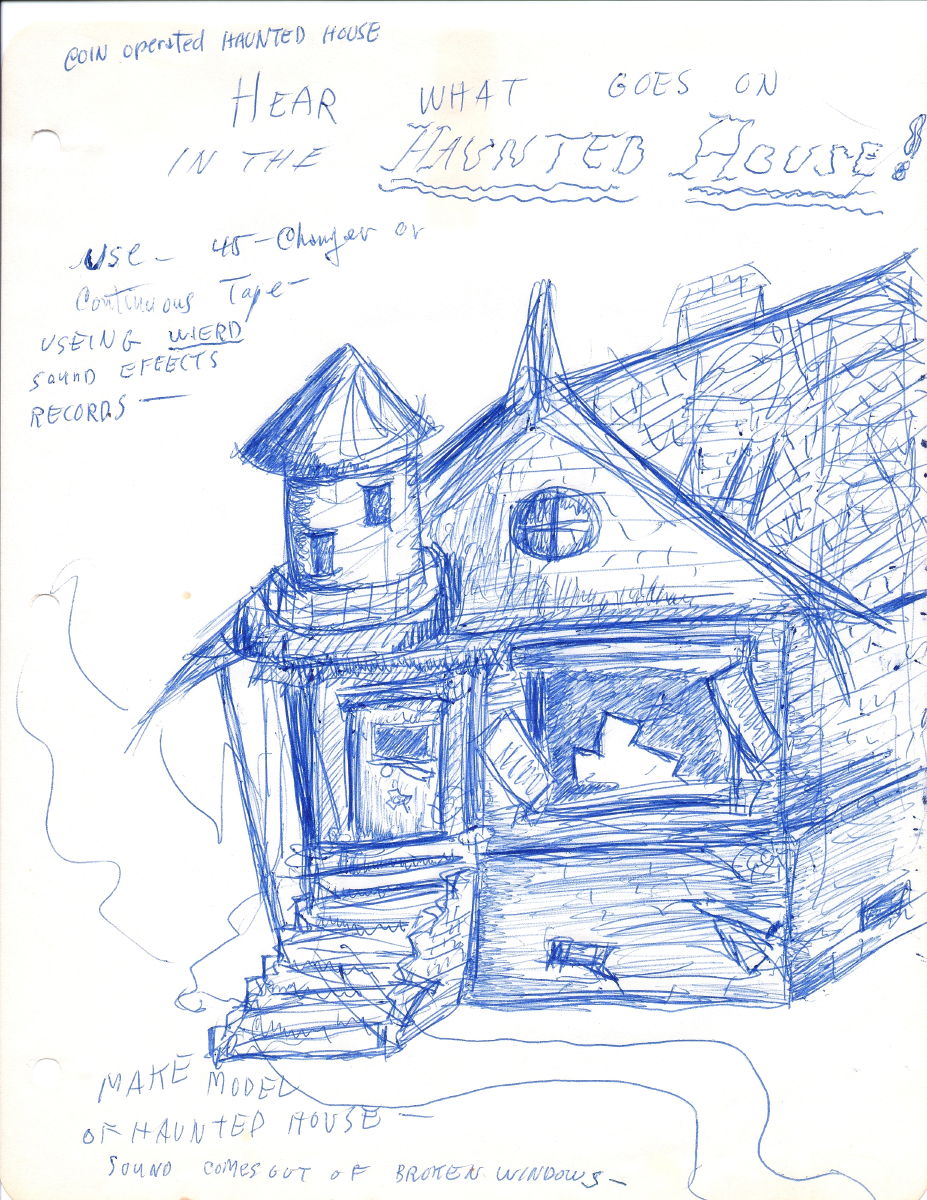 COIN operated HAUNTED HOUSE
HEAR WHAT GOES ON
IN THE HAUNTED HOUSE!
USE - 45-Changer or
Continuous Tape-
USEING WIERD
SOUND EFFECTS
RECORDS -
MAKE MODEL
OF HAUNTED HOUSE -
SOUND COMES OUT OF BROKEN WINDOWS -